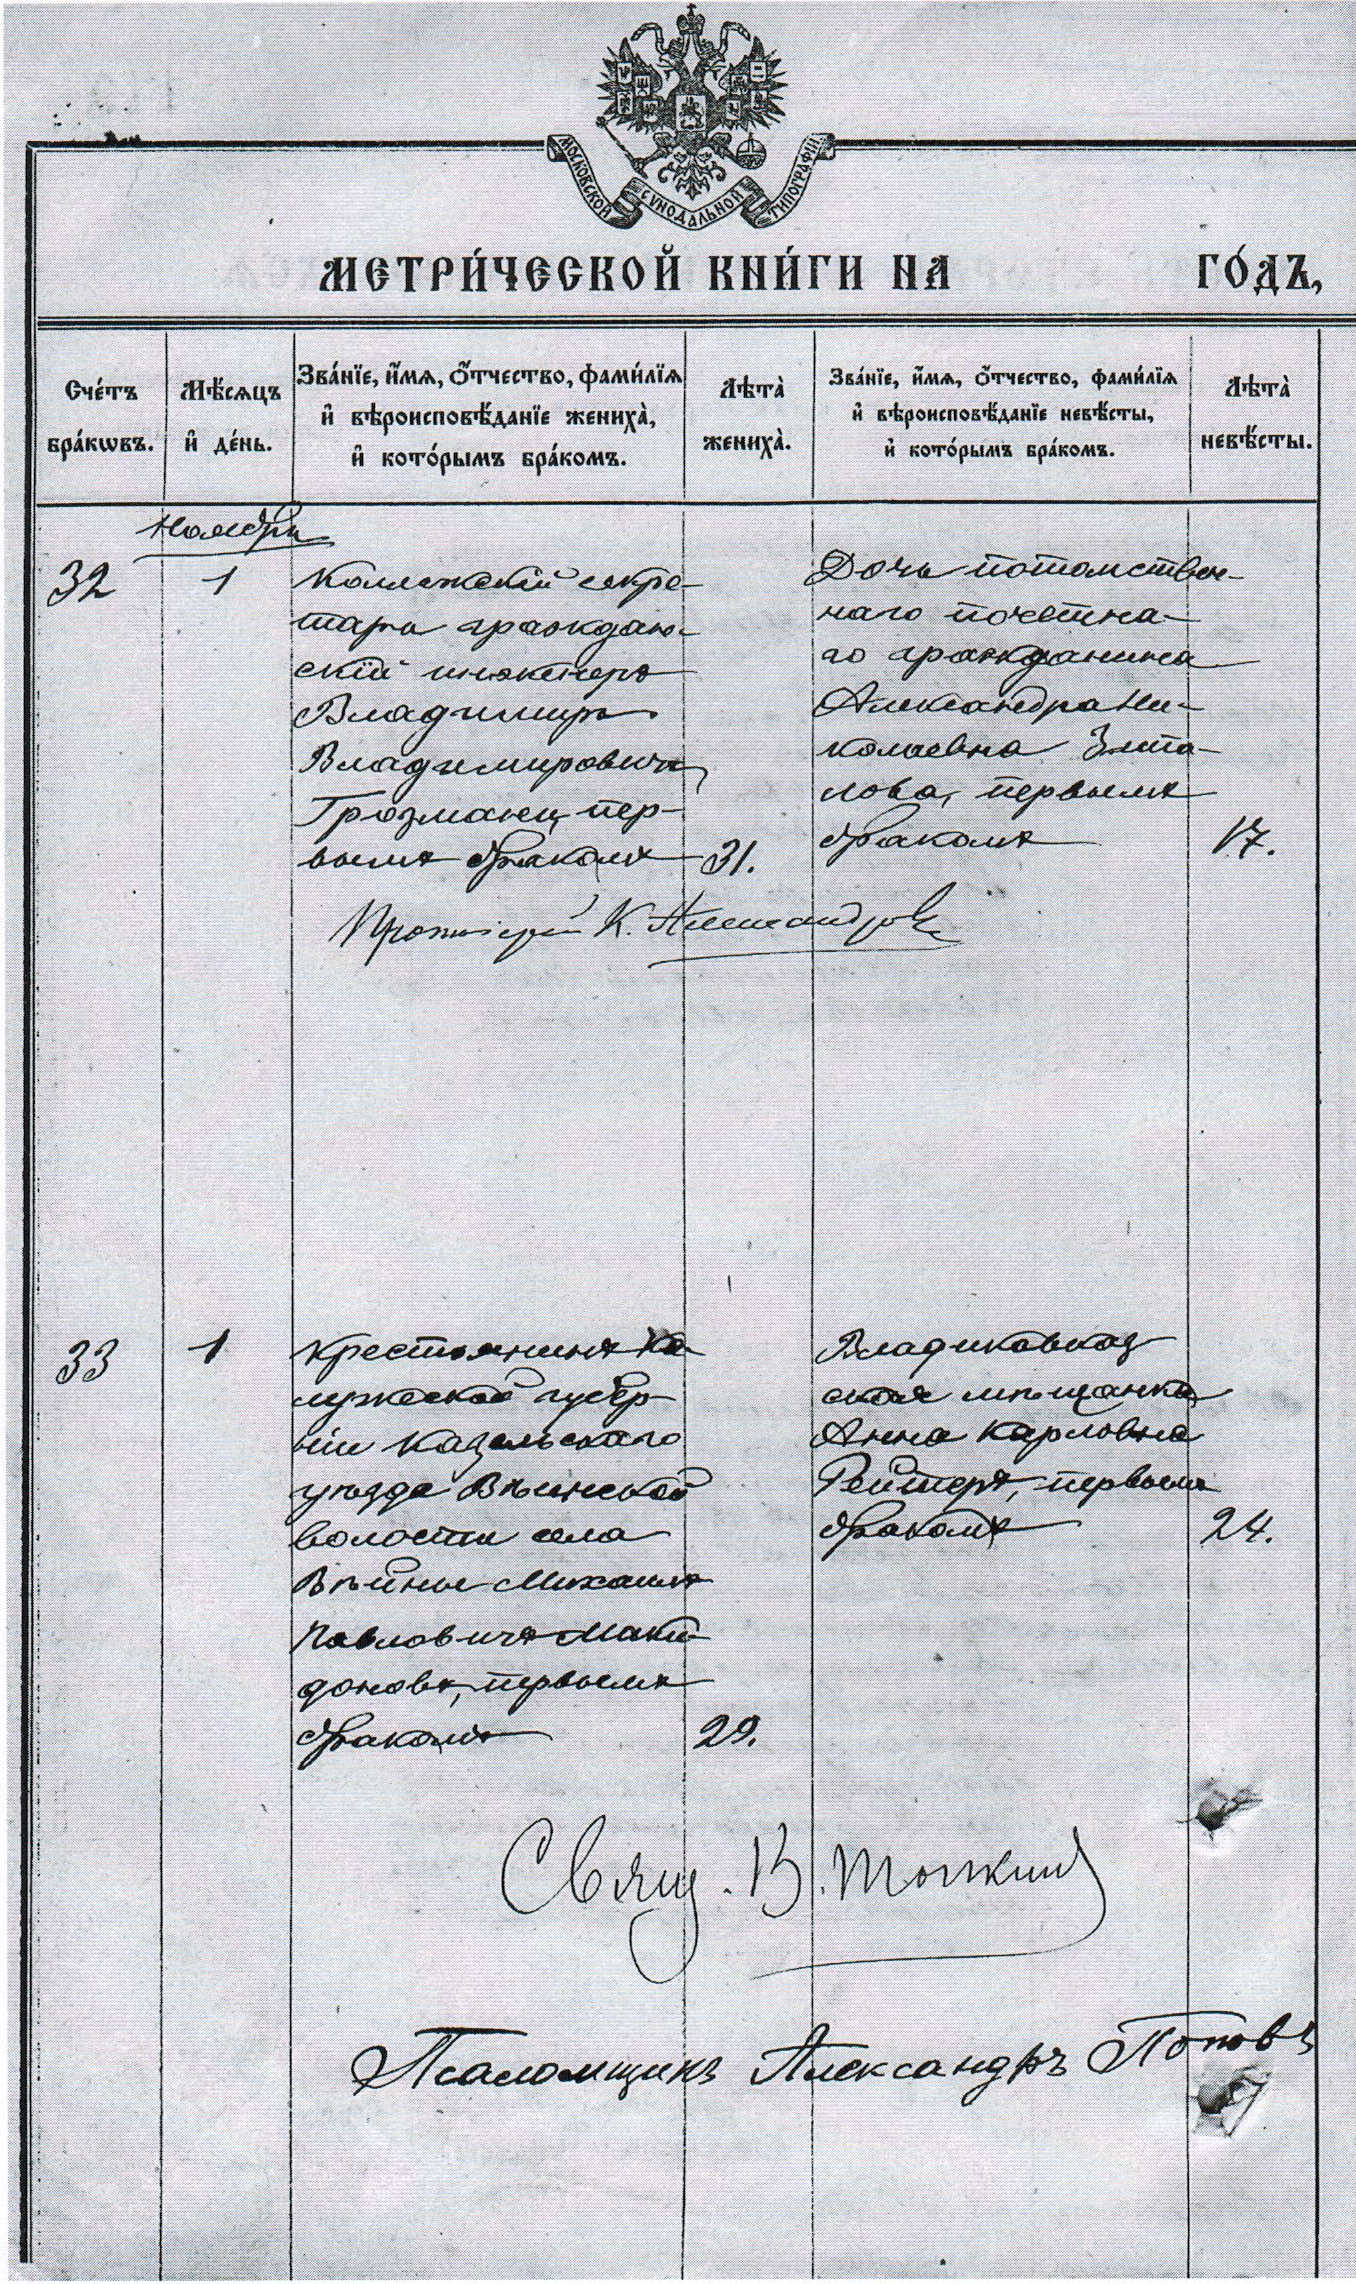 МОСКОВСКОЙ СѴНОДАЛЬНОЙ ТИПОГРАФІИ
МЕТРИ́ЧЕСКОЙ КНИ́ГИ НА ГО́ДЪ,
Сче́тъ
бра́кѡвъ.
Мѣ́сѧцъ
и҆ де́нь.
Зва́нїе, и҆́мѧ, ѻ҆́тчество, фами́лїѧ
и҆ вѣроисповѣ́данїе жениха̀,
и҆ кото́рымъ бра́комъ.
Лѣта̀
жениха̀.
Зва́нїе, и҆́мѧ, ѻ҆́тчество, фами́лїѧ
и҆ вѣроисповѣ́данїе невѣ́сты,
и҆ кото́рымъ бра́комъ.
Лѣта̀
невѣ́сты.
Ноября
32
1
Коллежскій секре-
тарь граждан-
скій инженеръ
Владимиръ
Владимировичъ
Грозманц, пер-
вымъ бракомъ
31.
Дочь потомствен-
наго почетна-
го гражданина
Александра Ни-
колаевна Зипа-
лова, первымъ
бракомъ
17.
Протоіерей К. Александровъ
33
1
Крестьянинъ Ка-
лужской губер-
ніи Козельскаго
уѣзда Вѣинской
волости села
Вѣйны Михаилъ
Павловичъ Маки-
доновъ, первымъ
бракомъ
29.
Владикавказ
ская мѣщанка
Анна Карловна
Рейтеръ, первымъ
бракомъ
24.
Свящ. В.
Псаломщикъ Александръ Поповъ